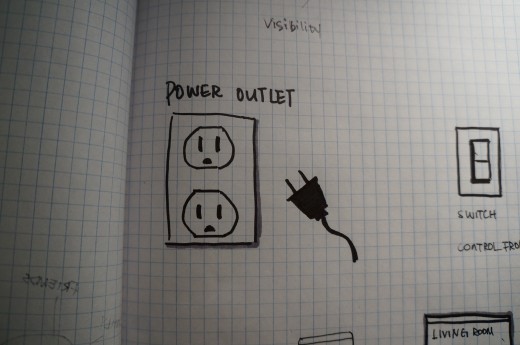 Visibility
POWER OUTLET
SWITCH
CONTROL FRO
LIVING ROOM